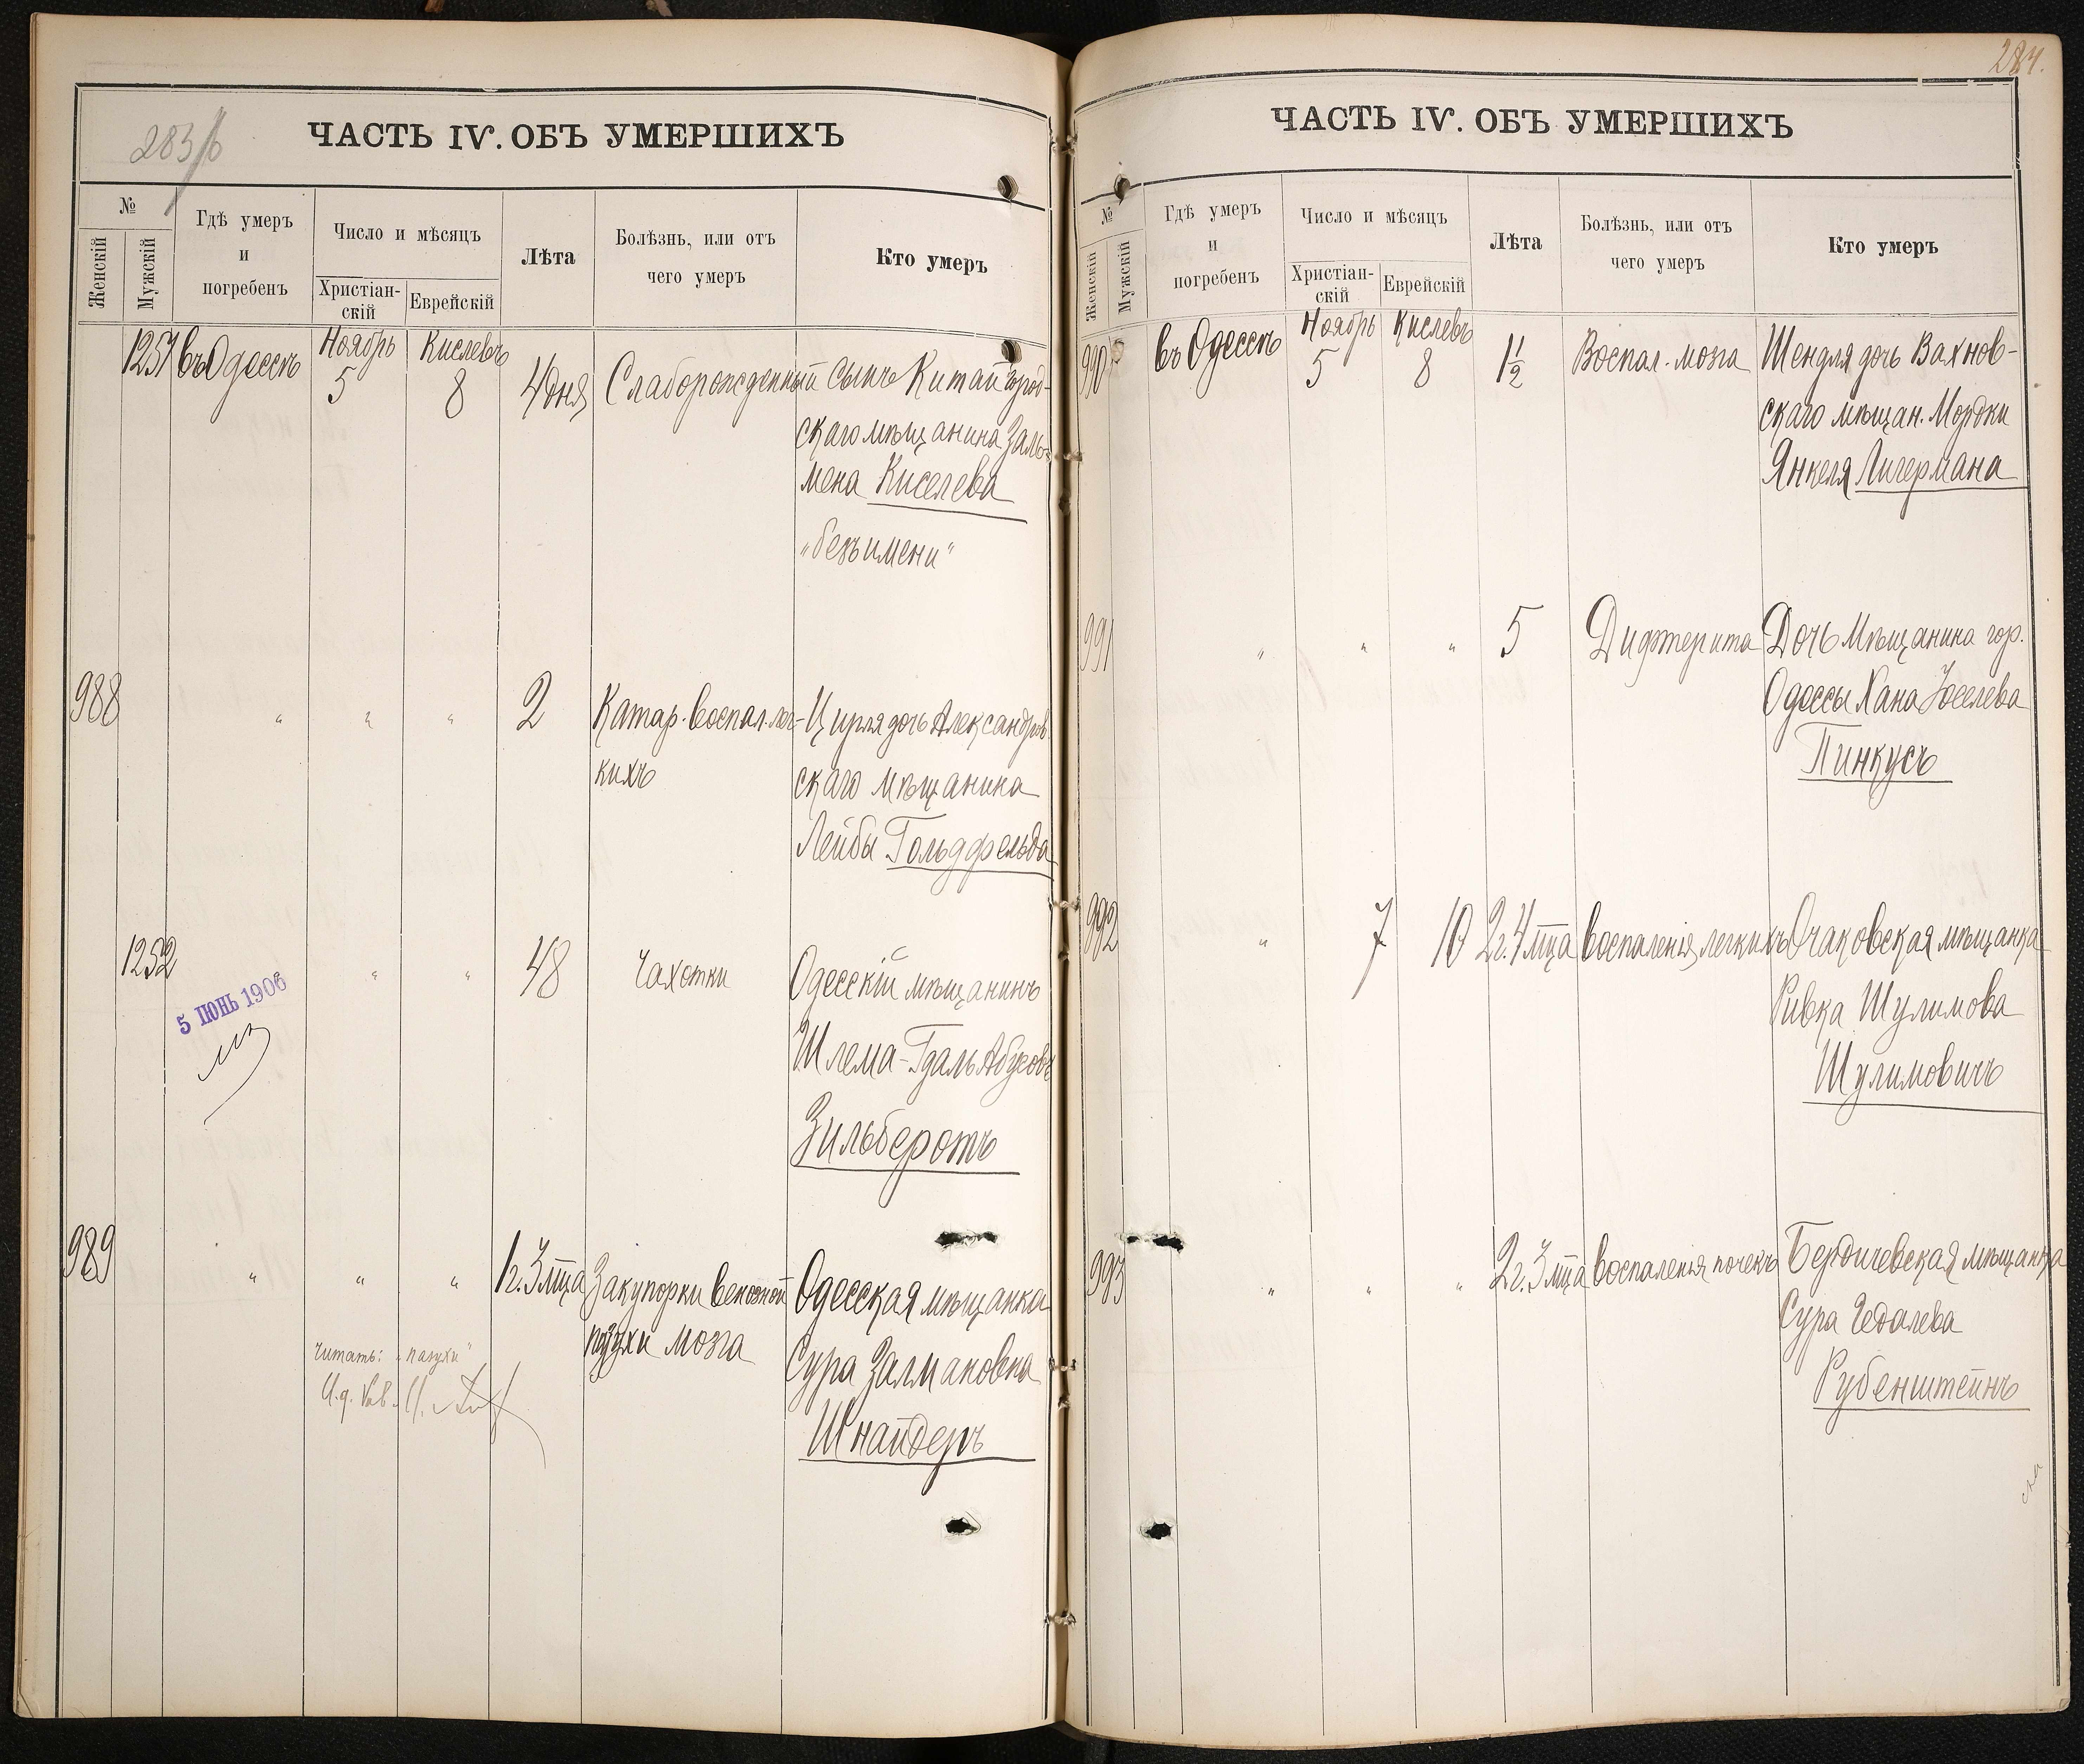 283/б
ЧАСТЬ IV. ОБЪ УМЕРШИХЪ
№
Женскій
Мужскій
Гдѣ умеръ
и
погребенъ
Число и мѣсяцъ
Христіан-
скій
Еврейскій
Лѣта
Болѣзнь, или отъ
чего умеръ
Кто умеръ
1251 въ Одессѣ Ноябрь 5 Кислевъ 8 4 дня Слаборожденный сынъ Китайгород-
скаго мѣщанина Заль-
мена Киселева
„безъ имени“
988 „ „ „ 2 Катар. воспал. лег- Цирля дочь Александров-
кихъ скаго мѣщанина
Лейбы Гольдфельда
1252 „ „ 48 Чахотки Одесскій мѣщанинъ
5 ІЮНЬ 1906
Шлема-Гдаль
Зильберотъ
989 „ „ „ 1 г. 3 мѣца Закупорки венозной Одесская мѣщанка
пазухи мозга Сура Залмановна
Шнайдеръ
Читать: „пазухи“
И.д.
284.
ЧАСТЬ IV. ОБЪ УМЕРШИХЪ
№
Женскій
Мужскій
Гдѣ умеръ
и
погребенъ
Число и мѣсяцъ
Христіан-
скій
Еврейскій
Лѣта
Болѣзнь, или отъ
чего умеръ
Кто умеръ
990 въ Одессѣ Ноябрь 5 Кислевъ 8 1 1/2 Воспал. мозга Шендля дочь Вахнов-
скаго мѣщан. Мордки
Янкеля Лигермана
991 „ „ „ 5 Дифтерита Дочь мѣщанина гор.
Одессы Хана Іоселева
Пинкусъ
992 „ 7 10 2 г. 4 мѣца воспаленія легкихъ Очаковская мѣщанка
Ривка Шулимова
Шулимовичъ
993 „ „ „ 2 г. 3 мѣца воспаленія почекъ Бердичевская мѣщанка
Сура Гедалева
Рубенштейнъ